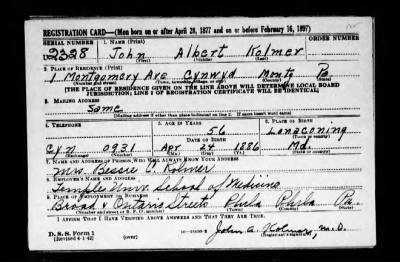 REGISTRATION CARD—(Men born on or after April 28, 1877 and on or before February 16, 1897)
SERIAL NUMBER 1. NAME (Print) ORDER NUMBER
U 2328 John Albert Kolmer
(First) (Middle) (Last)
2. PLACE OF RESIDENCE (Print)
1 Montgomery Ave Cynwyd Montg Pa.
(Number and street) (Town, township, village, or city) (County) (State)
[THE PLACE OF RESIDENCE GIVEN ON THE LINE ABOVE WILL DETERMINE LOCAL BOARD
JURISDICTION; LINE 2 OF REGISTRATION CERTIFICATE WILL BE IDENTICAL]
3. MAILING ADDRESS
Same
[Mailing address if other than place indicated on line 2. If same insert word same]
4. TELEPHONE 5. AGE IN YEARS 6. PLACE OF BIRTH
56 Lonaconing
DATE OF BIRTH (Town or county)
Cyn 0931 Apr 24 1886 Md.
(Exchange) (Number) (Mo.) (Day) (Yr.) (State or country)
7. NAME AND ADDRESS OF PERSON WHO WILL ALWAYS KNOW YOUR ADDRESS
Mrs. Bessie C. Kolmer
8. EMPLOYER'S NAME AND ADDRESS
Temple Univ. School of Medicine
9. PLACE OF EMPLOYMENT OR BUSINESS
Broad & Ontario Streets Phila Phila Pa.
(Number and street or R. F. D. number) (Town) (County) (State)
I AFFIRM THAT I HAVE VERIFIED ABOVE ANSWERS AND THAT THEY ARE TRUE.
D. S. S. Form 1
(Revised 4-1-42) (over) John A. Kolmer, M.D.
(Registrant's signature)